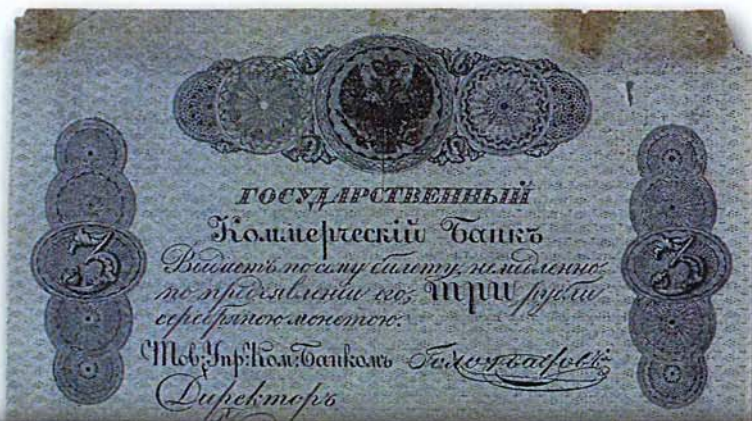 ГОСУДАРСТВЕННЫЙ
Коммерческій Банкъ
Выдаетъ по сему билету, немедленно
по предъявленіи его, три рубли
серебряною монетою.
Тов: Упр: Ком: Банкомъ
Директоръ
3
3